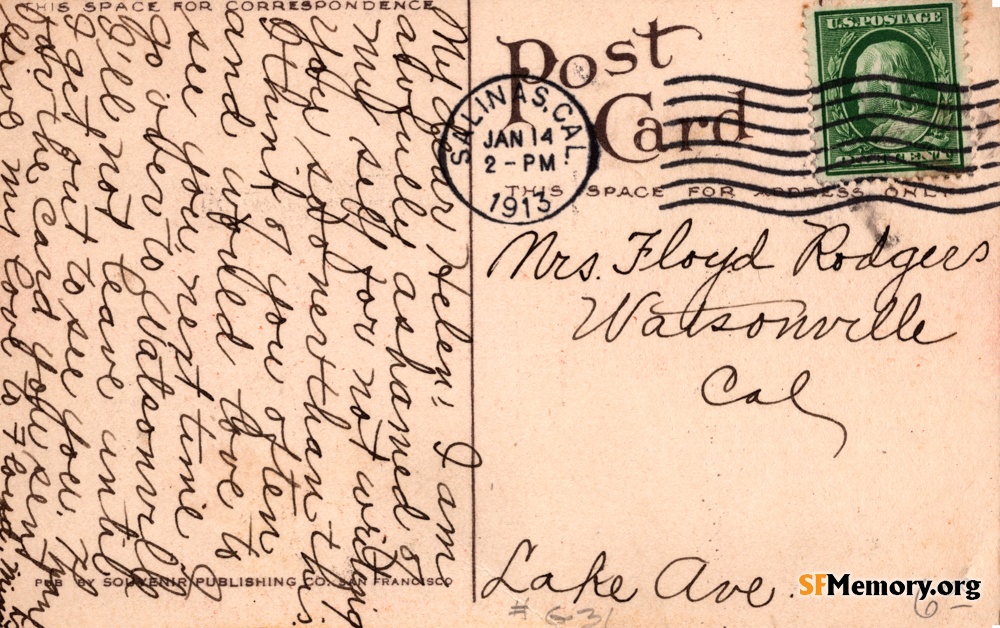 THIS SPACE FOR CORRESPONDENCE
Post
Card
THIS SPACE FOR ADDRESS ONLY
U.S. POSTAGE
SALINAS, CAL.
JAN 14
2 - PM
1913
Mrs. Floyd Rodgers
Watsonville
Cal
Lake Ave.
My dear Helen: I am
awfully ashamed of
my self for not writing
you sooner than this
I think of you often
and would love to
see you, next time I
go over to Watsonville
I'll not leave until
I get out to see you. Thank
for the card you sent
my love
PUB BY SOUVENIR PUBLISHING CO. SAN FRANCISCO
# 631
6-
SFMemory.org